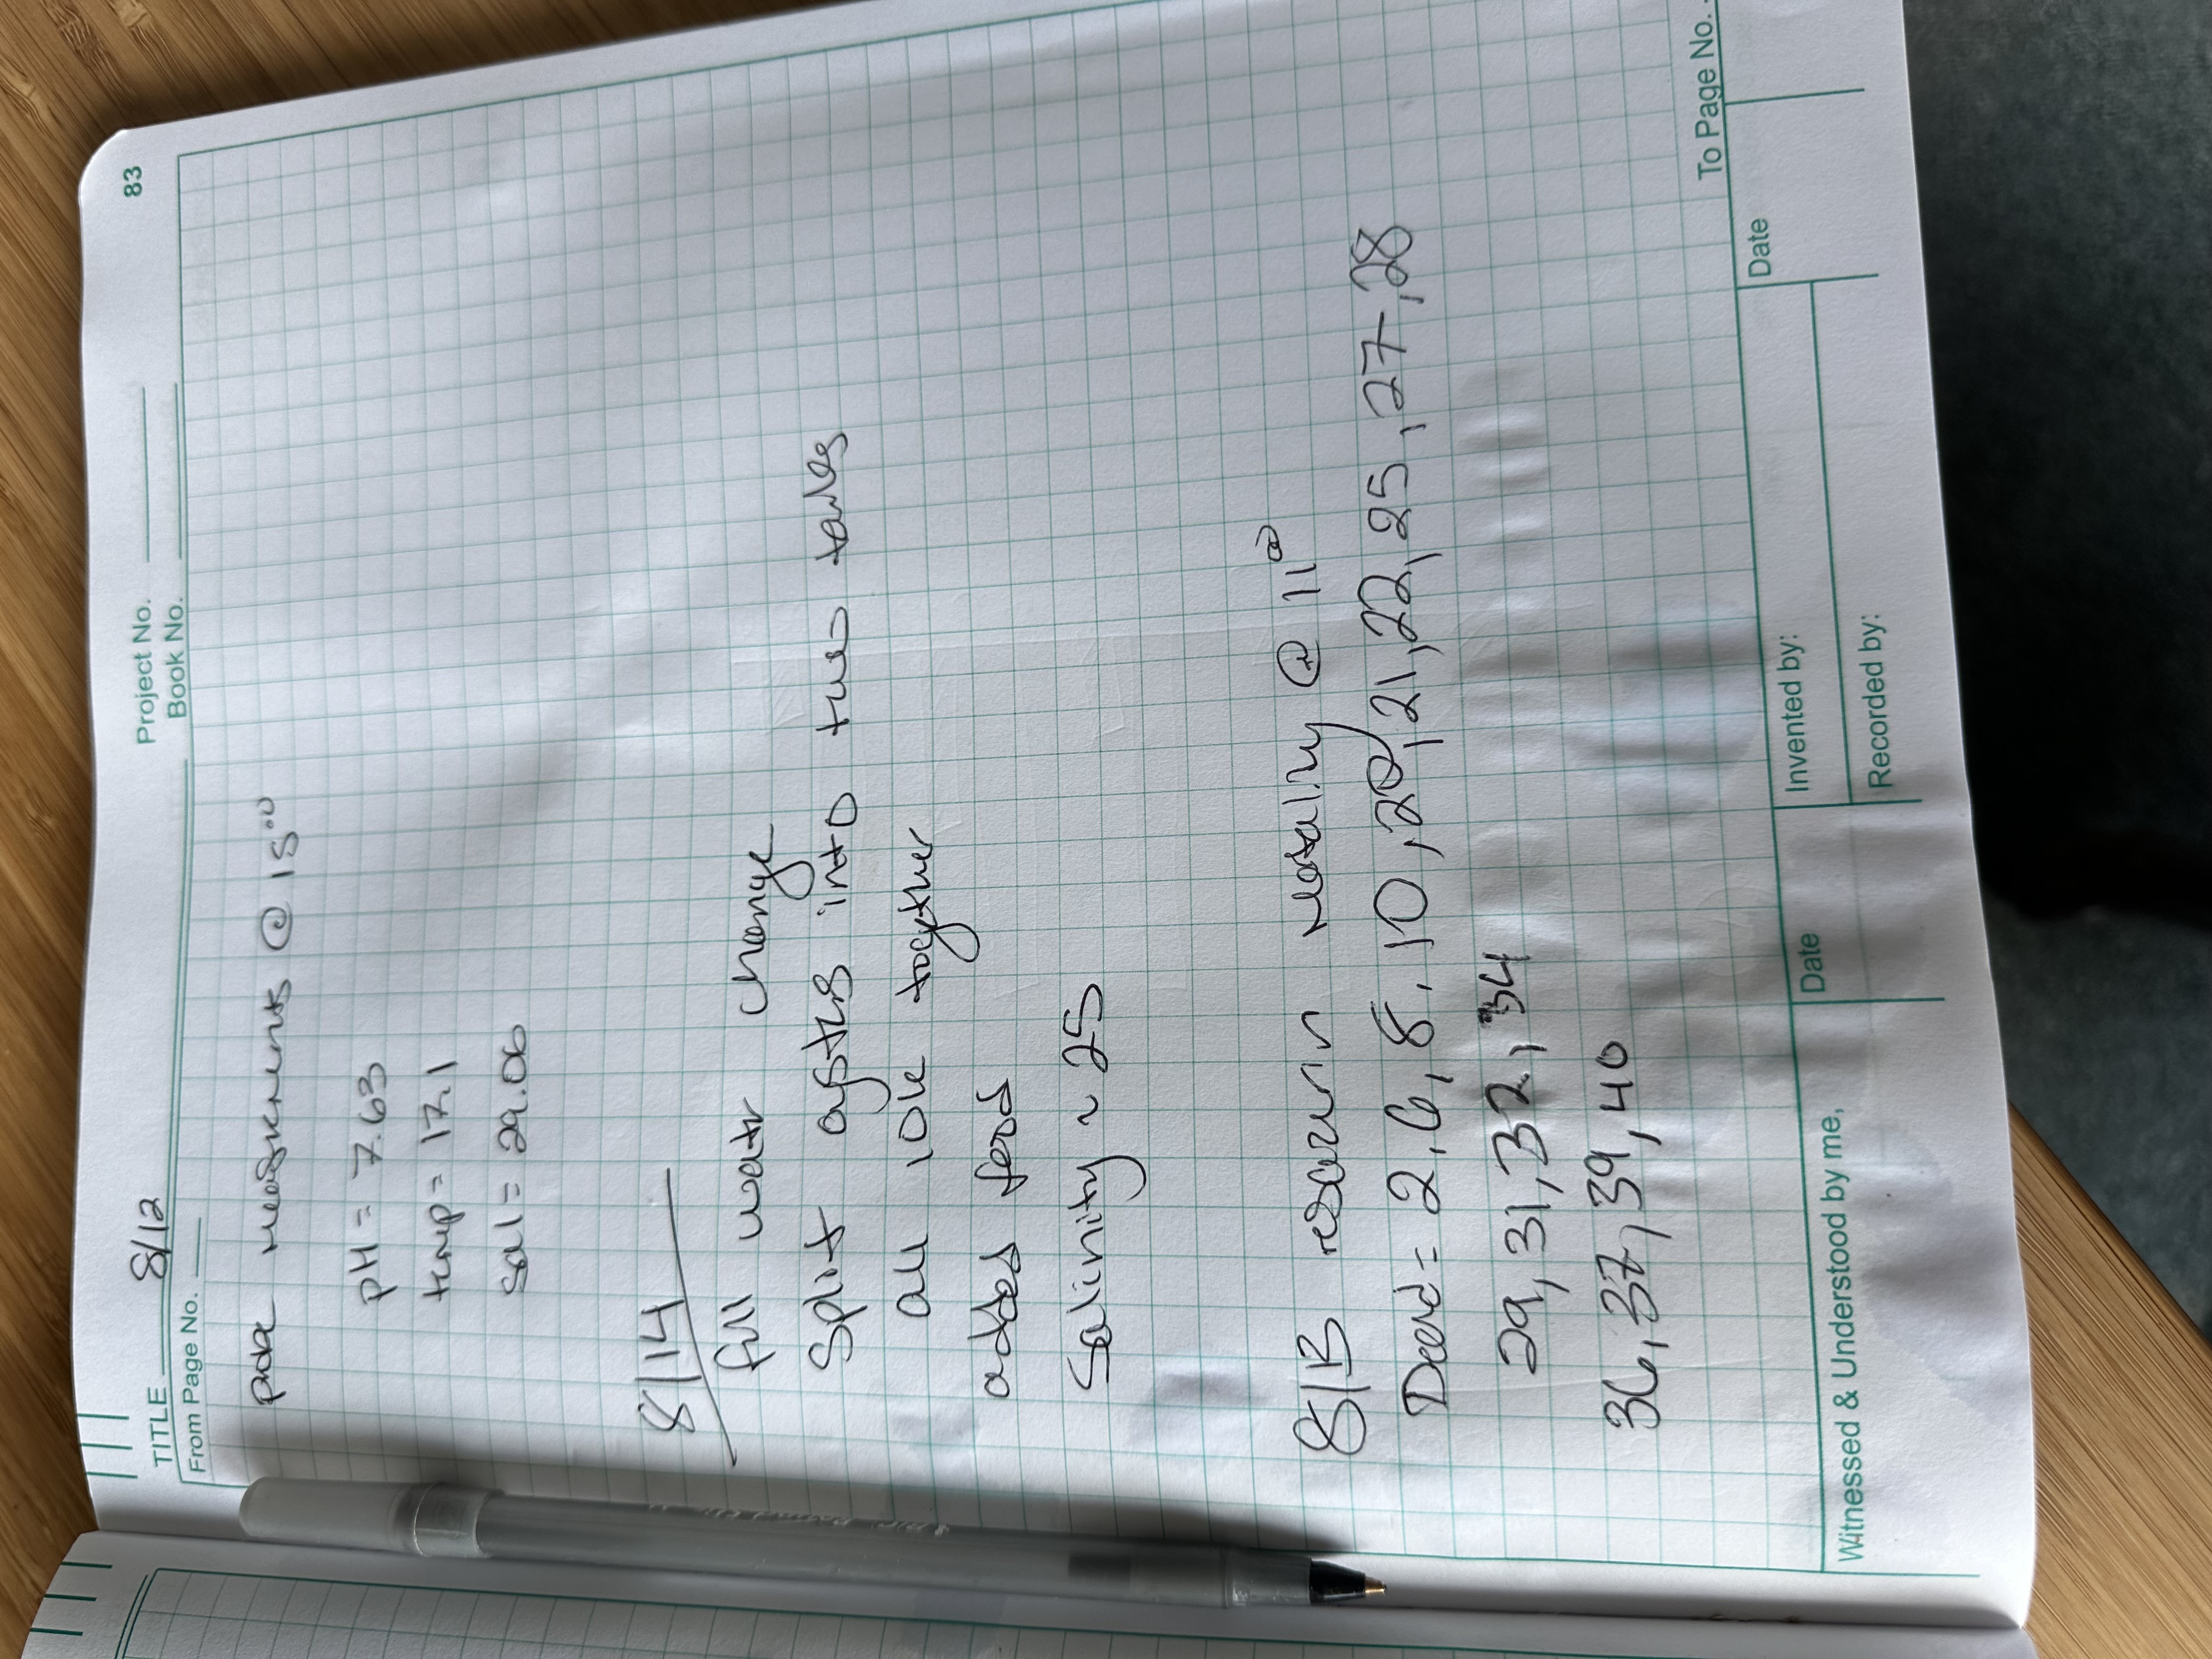 83
TITLE 8/12
Project No.
Book No.
From Page No.
probe measurements @ 15⁰⁰
pH = 7.63
temp = 17.1
sal = 29.06
8/14
full water change
Split oysters into two tanks
all 10k together
added food
Salinity ~ 25
8/13 resazurin mortality @ 11⁰⁰
Dead = 2, 6, 8, 10, 20, 21, 22, 25, 27, 28
29, 31, 32, 34
36, 37, 39, 40
To Page No.
Witnessed & Understood by me,
Date
Invented by:
Date
Recorded by: